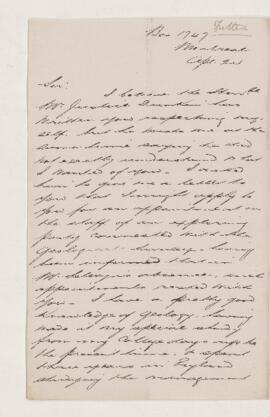 Box 747
Montreal
Sept. 2nd
Sir:
I believe the Hon'ble
Mr. Justice Dunkin has
written you respecting my-
self, but he wrote me at the
same time saying he did
not exactly understand what
I wanted of you. I wanted
him to give me a letter to
you that I might apply to
you for an appointment on
the staff of an exploring
party connected with the
Geological Survey - having
been informed that in
Mr. Selwyn's absence, such
appointments rested with
you. I have a pretty good
knowledge of Geology, having
made it my special study
from my College days up to
the present time. I spent
three years in England
studying the management